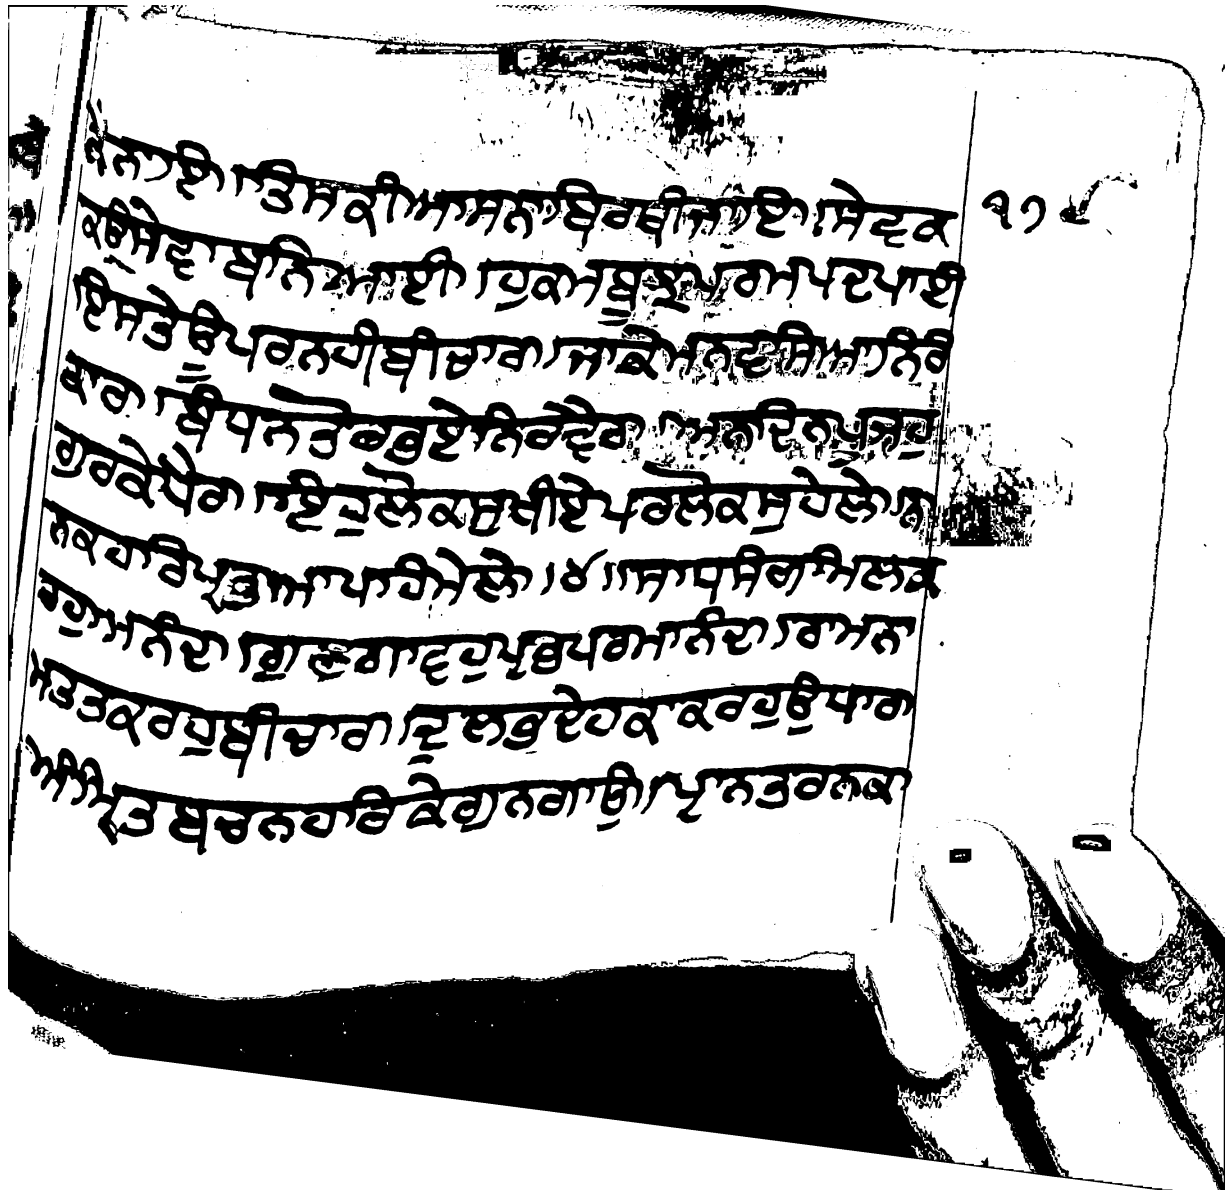 ਕੈਨਾਇ ।ਤਿਸਕੀਆਸਨਾਬਿਰਥੀਜਾਇ ।ਸੇਵਕ ੧੭੪
ਕਉਸੇਵਾਬਨਿਆਈ ।ਹੁਕਮਬੂਝਿਪਰਮਪਦਪਾਈ
ਇਸਤੇਊਪਰਨਹੀਬੀਚਾਰਾ।ਜਾਕੈਮਨਵਸਿਆਨਿਰੰ
ਕਾਰਾ ।ਬੰਧਨਤੋਰਭਏਨਿਰਵੈਰ ।ਅਨਦਿਨਪੂਜਹ
ਗੁਰਕੇਪੈਰ ।ਇਹੁਲੋਕਸੁਖੀਏਪਰਲੋਕਸੁਹੇਲੇ।ਨਾ
ਨਕਹਰਿਪ੍ਰਭਆਪਹਿਮੇਲੇ।੪।।ਸਾਧਸੰਗਿਮਿਲਕ
ਰਹੁਅਨੰਦਾ ।ਗੁਣਗਾਵਹੁਪ੍ਰਭਪਰਮਾਨੰਦਾ।ਰਾਮਨਾ
ਮਤਤਕਰਹੁਬੀਚਾਰਾ ।ਦੂਲਭਦੇਹਕਾਕਰਹੁਉਧਾਰਾ
ਅੰਮ੍ਰਿਤਬਚਨਹਰਿਕੇਗੁਨਗਾਉ।ਪ੍ਰਾਨਤਰਨਕਾ